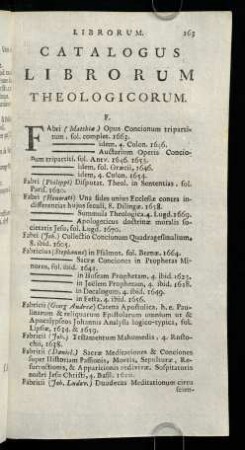 LIBRORUM. 263
CATALOGUS
LIBRORUM
THEOLOGICORUM.
F.
FAbri (Matthiæ) Opus Concionum tripartitum
. fol. complet. 1663.
idem, 4. Colon. 1646.
Auctarium Operis Concionum
tripartiti. fol. Antv. 1646. 1653.
idem, fol. Græcii, 1646.
idem, 4. Colon. 1654.
Fabri (Philippi) Disputat. Theol. in Sententias. fol.
Paris. 1620.
Fabri (Honorati) Una fides unius Ecclesiæ contra indifferentias
hujus seculi, 8. Dilingæ. 1658.
Summula Theologica. 4. Lugd. 1669.
Apologeticus doctrinæ moralis societatis
Jesu, fol. Lugd. 1670.
Fabri (Joh.) Collectio Concionum Quadragesimalium,
8. ibid. 1605.
Fabricius (Stephanus) in Psalmos. fol. Bernæ. 1664.
Sacræ Conciones in Prophetas Minores,
fol. ibid. 1641.
in Hoseam Prophetam, 4. ibid. 1623.
in Joëlem Prophetam, 4. ibid. 1628.
in Decalogum, 4. ibid. 1649.
in Festa, 4. ibid. 1656.
Fabricii (Georg Andreæ) Catena Apostolica, h. e. Paulinarum
& reliquarum Epistolarum omnium ut &
Apocalypseos Johannis Analysis logico-typica, fol.
Lipsiæ, 1624. & 1639.
Fabricii (Joh.) Testamentum Mahomedis, 4. Rostochii,
1638.
Fabricii (Daniel.) Sacræ Meditationes & Conciones
super Historiam Passionis, Mortis, Sepulturæ, Resurrectionis,
& Apparitionis redivivæ, Sospitatoris
nostri Jesu Christi, 4. Basil. 1620.
Fabricii (Joh. Ludov.) Duodecas Meditationum circa